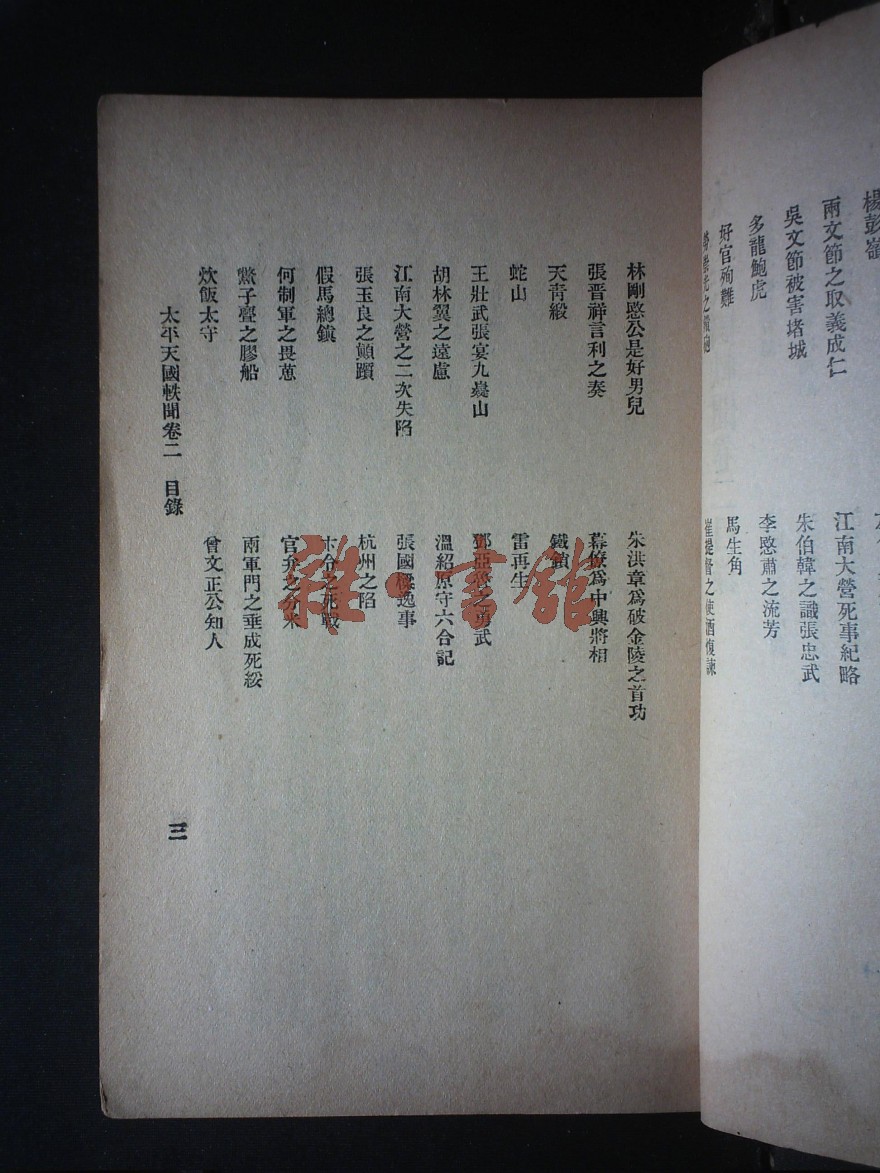 楊彭嶺
兩文節之取義成仁
江南大營死事紀略
吳文節被害堵城
朱伯韓之識張忠武
多龍鮑虎
李愍肅之流芳
好官殉難
馬生角
崔提督之使酒愎諫
林剛愍公是好男兒
朱洪章爲破金陵之首功
張晋祥言利之奏
幕僚爲中興將相
天青緞
鐵鎖
蛇山
雷再生
王壯武張宴九嶷山
鄧亞魯之勇武
胡林翼之遠慮
溫紹原守六合記
江南大營之二次失陷
張國樑逸事
張玉良之顛躓
杭州之陷
假馬總鎮
卡分之死戰
何制軍之畏葸
官弁之分米
黨子壹之膠船
兩軍門之垂成死綏
炊飯太守
曾文正公知人
太平天國軼聞卷二 目錄
三
雜·書館